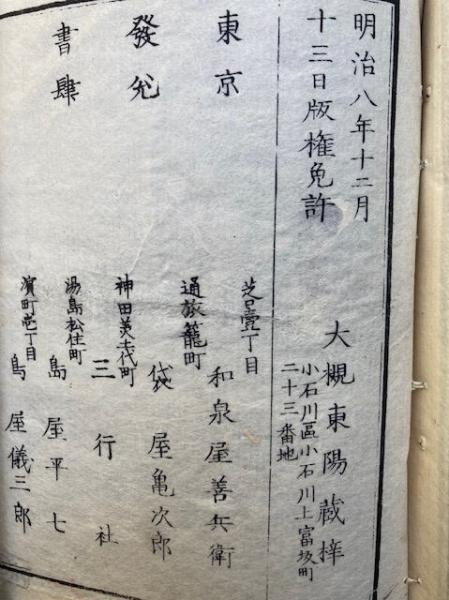 明治八年十二月
十三日版權免許
大槻東陽蔵梓
小石川區小石川上富坂町
二十三番地
東京
發兌
書肆
芝口壹丁目
和泉屋善兵衛
通旅籠町
袋屋亀次郎
神田美土代町
三行社
湯島松住町
島屋平七
濱町壱丁目
島屋儀三郎